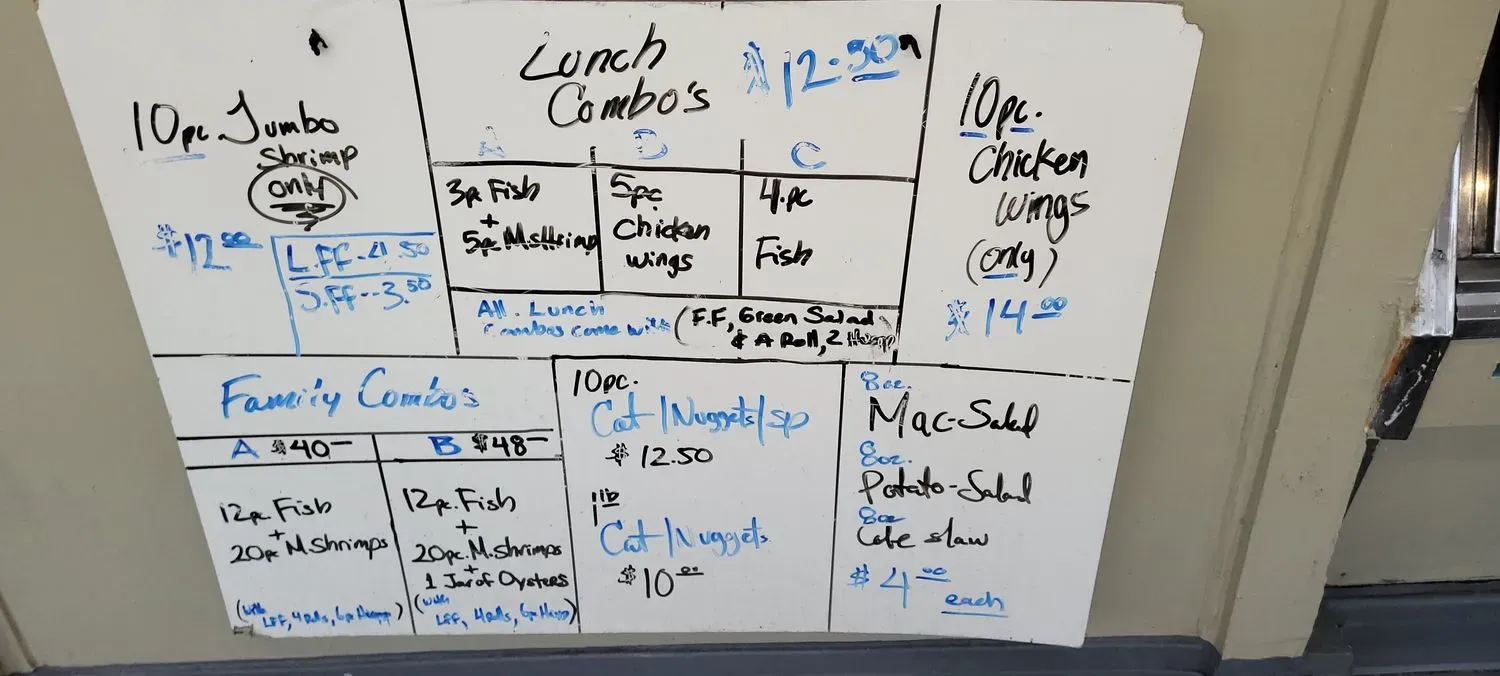 10pc. Jumbo
Shrimp
only
$12.00
L.FF-4.50
S.FF--3.50
Lunch
Combo's
$12.50
A B C
3pc Fish
+
5pc M.Shrimp
5pc
Chicken
wings
4.pc
Fish
All. Lunch
Combos come with
(F.F, Green Salad
& A Roll, 2
10pc.
Chicken
wings
(only)
$14.00
Family Combo's
A $40—
B $48—
12pc Fish
+
20pc M.Shrimps
(with
LFF, 4 Rolls, 6pc
12pc. Fish
+
20pc. M.shrimps
+
1 Jar of Oysters
(with
LFF, 4Rolls, 6pc
10pc.
Cat/Nuggets/sp
$12.50
1lb
Cat/Nuggets
$10.00
8oz.
Mac-Salad
8oz.
Potato-Salad
8oz
Cole slaw
$4.00
each